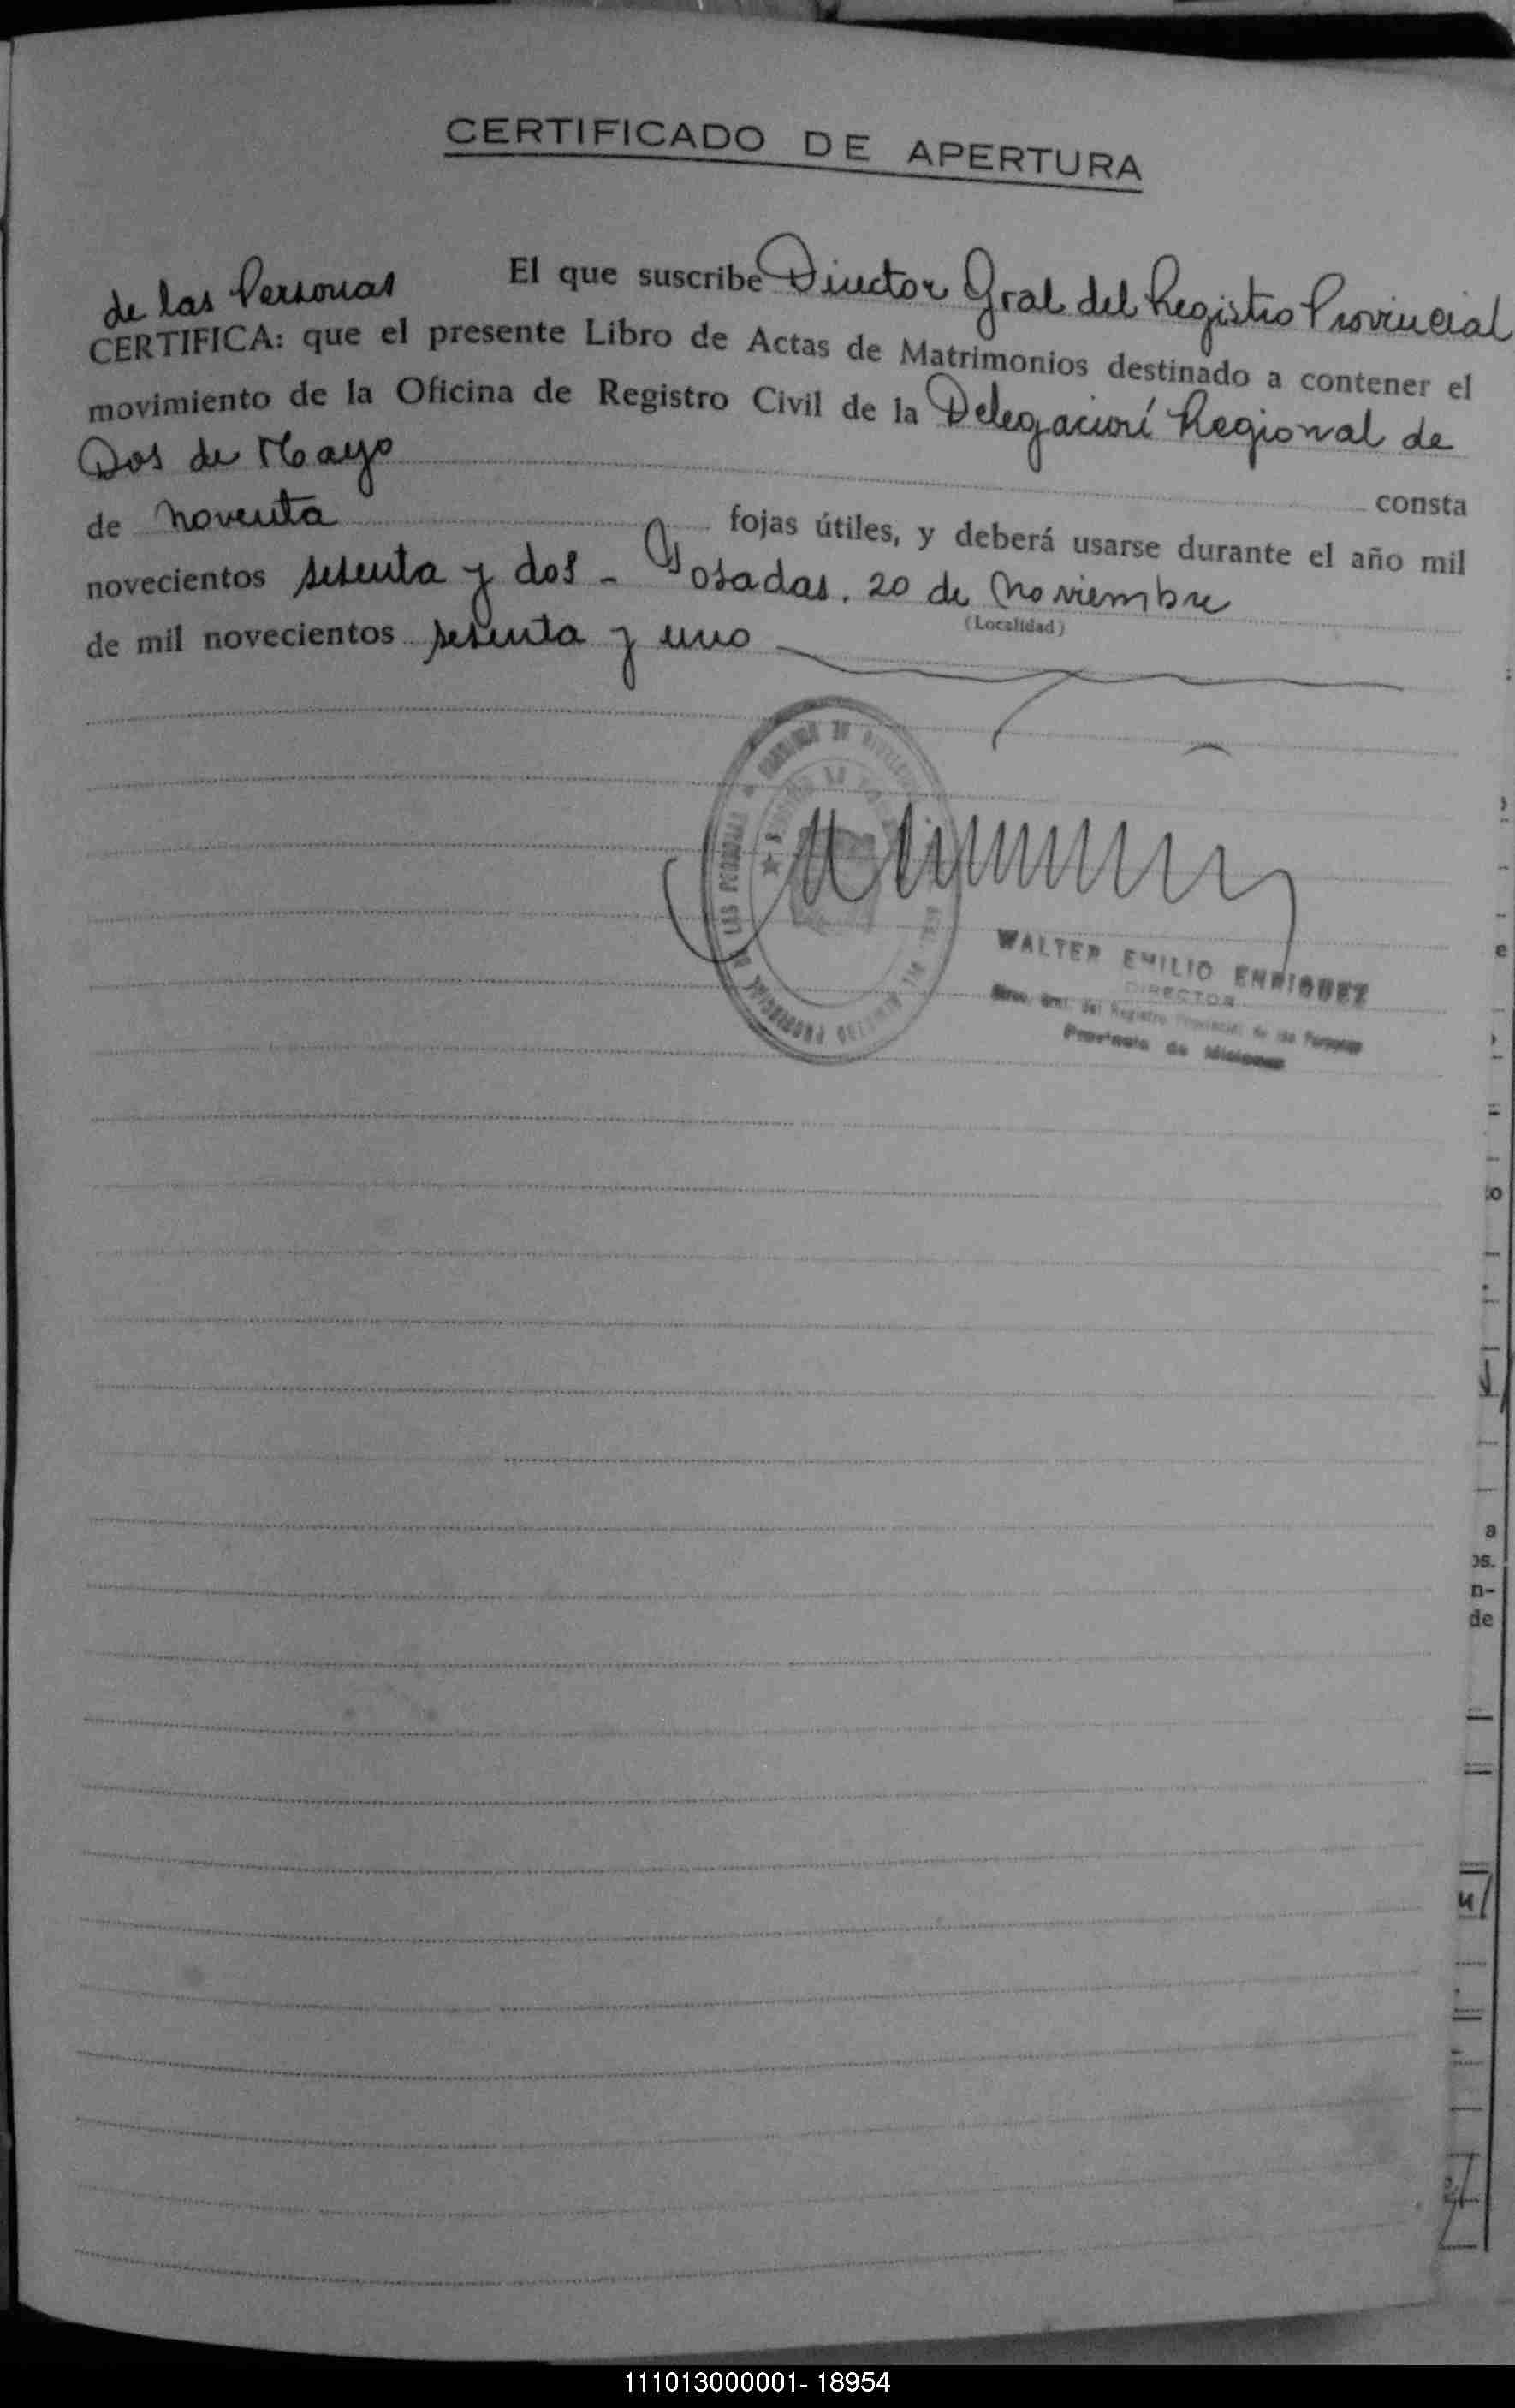 CERTIFICADO DE APERTURA
El que suscribe Director Gral del Registro Provincial
de las Personas
CERTIFICA: que el presente Libro de Actas de Matrimonios destinado a contener el
movimiento de la Oficina de Registro Civil de la Delegación Regional de
Dos de Mayo consta
de noventa fojas útiles, y deberá usarse durante el año mil
novecientos setenta y dos - Posadas, 20 de Noviembre
(Localidad)
de mil novecientos setenta y uno
WALTER EMILIO ENRIQUEZ
DIRECTOR
Gral. del Registro Provincial de las Personas
Provincia de Misiones
111013000001- 18954